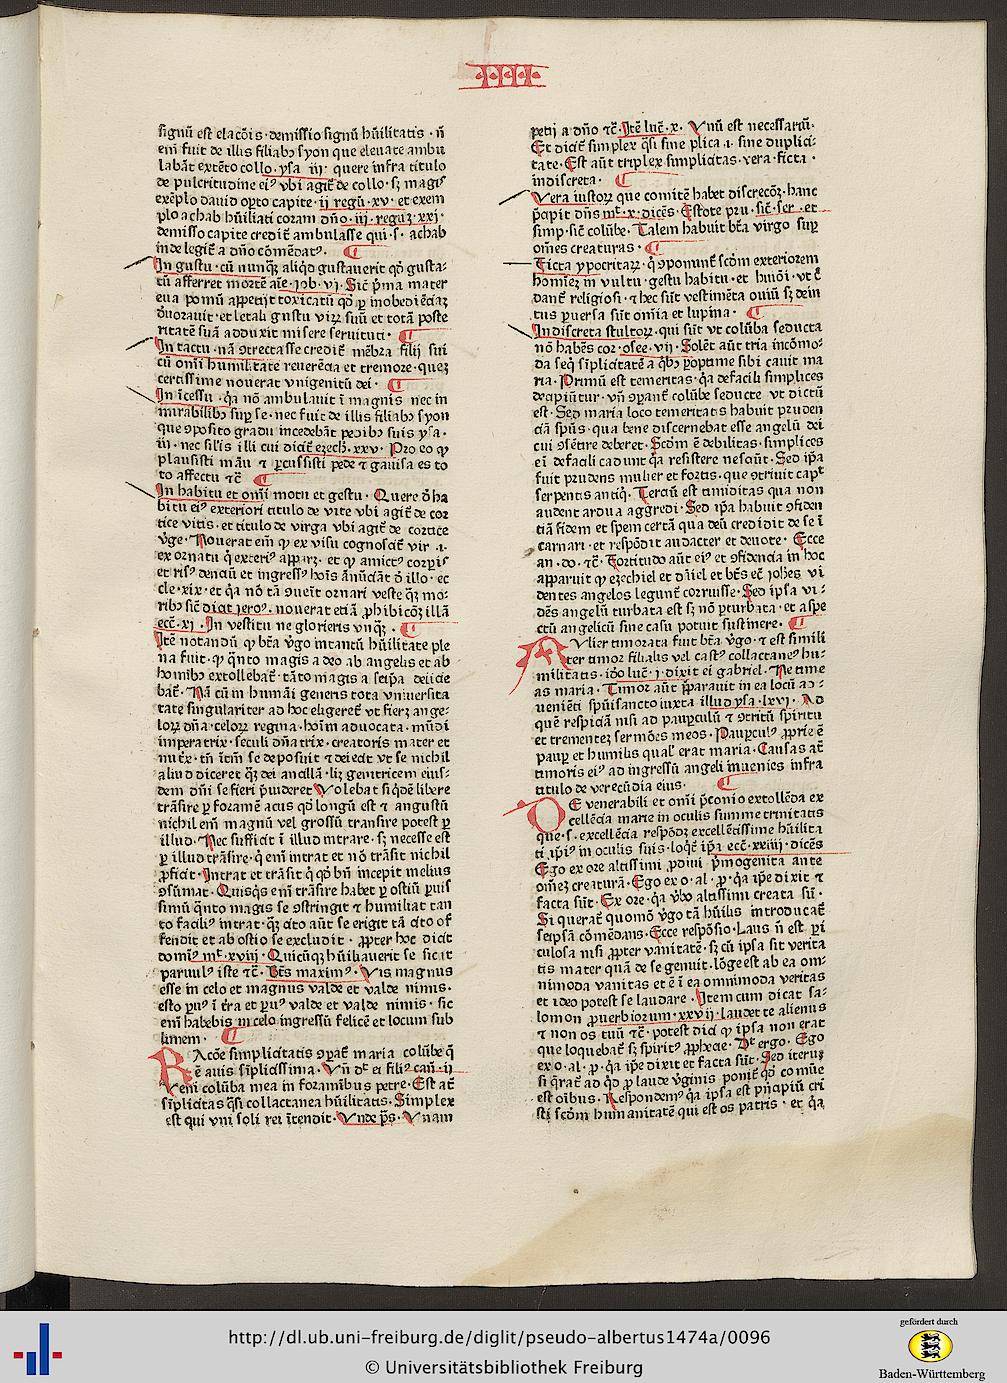 IIII
signū est elacōis · demissio signū hūilitatis · ñ
em̄ fuit de illis filiabꝫ syon que eleuate ambu
labāt extēto collo · ysa iij · quere infra titulo
de pulcritudine ei⁹ vbi agit̄ de collo · sꝫ magis
exēplo dauid opto capite · ij regū · xv · et exem
plo achab hūiliati coram dño · iij · reguꝫ · xxj ·
demisso capite credit̄ ambulasse qui · s · achab
inde legit̄ a dño cōmēdat⁹ ·
In gustu · cū nunqꝫ aliqd gustauerit qd̓ gusta-
tū afferret mortē aīe · iob · vj · Sic̄ pma mater
eua pomū appetijt toxicatū qd̓ ꝑ inobediēciaꝫ
deuorauit · et letali gustu viꝝ suū et totā poste
ritatē suā adduxit misere seruituti ·
In tactu · nā ꝯtrectasse credit̄ mēbra filij sui
cū omī humilitate reuerēcia et tremore · queꝫ
certissime nouerat vnigenitū dei ·
In īcessu · qa nō ambulauit ī magnis nec in
mirabilibꝫ suꝑ se · nec fuit de illis filiabꝫ syon
que ꝯposito gradu incedebāt pedibꝫ suis ysa ·
iij · nec silis illi cui dicit̄ ezech · xxv · Pro eo ꝙ
plausisti manu et ꝑcussisti pede et gauisa es to
to affectu ⁊c̄
In habitu et omī motu et gestu · Quere de ha
bitu ei⁹ exteriori titulo de vite vbi agit̄ de cor
tice vitis · et titulo de virga vbi agit̄ de cortice
v̓ge · Nouerat em̄ ꝙ ex visu cognoscit̄ vir ·⁊·
ex ornatu q̓ exteri⁹ apparꝫ · et ꝙ amict⁹ corꝑis
et ris⁹ denciū et ingress⁹ hoīs ānūciāt de illo · ec
cle · xix · et qa nō tā ꝯueit ornari veste qꝫ mo-
ribꝫ sic̄ dicit jero⁹ · nouerat etiā ꝓhibicōꝫ illā
ecc̄ · xj · In vestitu ne glorieris vnqꝫ ·
Itē notandū ꝙ btā v̓go intantū hūilitate ple
na fuit · ꝙ qnto magis a deo ab angelis et ab
homibꝫ extollebat̄ · tāto magis a seipa deiicie
bat̄ · Nā cū in humāi generis tota vniuersita
tate singulariter ad hoc eligeret̄ vt fierꝫ ange-
loꝝ dña · celoꝝ regina · hoīm aduocata · mūdi
imperatrix · seculi dñatrix · creatoris mater et
nutx̄ · tn̄ itm̄ se deposuit et deiecit vt se nichil
aliud diceret qꝫ dei ancillā · lꝫ genitricem eius-
dem dn̄i se fieri puideret Volebat siqdē libere
trāsire ꝑ foramē acus qd̓ longū est et angustū
nichil em̄ magnū vel grossū transire potest ꝑ
illud · Nec sufficit ī illud intrare · sꝫ necesse est
ꝑ illud trāsire · q̓ em̄ intrat et nō trāsit nichil
ꝓficit · Intrat et trāsit q̓ qd̓ bn̄ incepit melius
ꝯsūmat · Quisqs em̄ trāsire habet ꝑ ostiū ꝑuis
simū qnto magis se ꝯstringit et humiliat tan
to facili⁹ intrat · qꝫ cito aūt se erigit tā cito of
fendit et ab ostio se excludit · ꝓpter hoc dicit
domi⁹ mt̄ · xviij · Quicūqꝫ hūiliauerit se sicut
paruul⁹ iste ⁊c̄ · Bt̄s maxim⁹ · Vis magnus
esse in celo et magnus valde et valde nimis ·
esto ꝑu⁹ ī t̄ra et ꝑu⁹ valde et valde nimis · sic
em̄ habebis in celo ingressū felicē et locum sub
limem ·
RAcōe simplicitatis ꝯꝑat̄ maria colūbe q̄
ē auis sīplicissima · Vn̄ dt̄ ei fili⁹ can̄ · ij
Veni colūba mea in foraminibus petre · Est at̄
sīplicitas qsi collactanea hūilitatis · Simplex
est qui vni soli rei ītendit · Vnde ps̄ · Vnam
petij a dño ⁊c̄ · Itē luc̄ · x · Vnū est necessariū ·
Et dicit̄ simplex qsi sine plica · i · sine duplici-
tate · Est aūt triplex simplicitas · vera · ficta ·
indiscreta ·
Vera iustoꝝ que comitē habet discrecōꝫ · hanc
pcipit dn̄s mt̄ · x · dicēs · Estote pru · sic̄ · ser · et
simp · sic̄ colūbe · Talem habuit btā virgo suꝑ
om̄es creaturas ·
Ficta ypocritaꝝ · q̓ ꝯponunt̄ scd̓m exteriorem
homīeꝫ in vultu · gestu habitu · et huiōi · vt c̄
dant̄ religiosi · et hec sūt vestimēta ouiū sꝫ dein
tus ꝑuersa sūt om̄ia et lupina ·
Indiscreta stultoꝝ · qui sūt vt colūba seducta
nō habēs cor · osee · vij · Solēt aūt tria incōmo-
da seqͥ sīplicitatē a qͥbꝫ ꝑoptime sibi cauit ma
ria · Primū est temeritas · qa defacili simplices
decipiūtur · vn̄ ꝯparant̄ colūbe seducte vt dictū
est · Sed maria loco temeritatis habuit pruden
ciā spūs · qua bene discernebat esse angelū dei
cui ꝯsētire deberet · Scd̓m ē debilitas · simplices
ei defacili cadunt qa resistere nesciūt · Sed ipa
fuit prudens mulier et fortis · que ꝯtriuit capt̄
serpentis antiqͥ · Terciū est timiditas qua non
audent ardua aggredi · Sed ipa habuit ꝯfiden
tiā fidem et spem certā qua deū credidit de se ī
carnari · et respōdit audacter et deuote · Ecce
an · do · ⁊c̄ · Fortitudo aūt ei⁹ et ꝯfidencia in hoc
apparuit ꝙ ezechiel et dāiel et bt̄s ec̄ joh̄es vi
dentes angelos legunt̄ corruisse · Sed ipsa vi-
dēs angelū turbata est sꝫ nō ꝑturbata · et aspe
ctū angelicū sine casu potuit sustinere ·
MVlier timorata fuit btā v̓go · et est simili
ter timor filialis vel cast⁹ collactane⁹ hu-
militatis · id̓o luc̄ · j · dixit ei gabriel · Ne time
as maria · Timor aūt pparauit in ea locū ad-
uenīeti spūisancto iuxta illud ysa · lxvj · Ad
quē respiciā nisi ad pauperculū et ꝯtritū spiritu
et trementeꝫ sermōes meos · Paupcul⁹ ꝓprie ē
paupꝑ et humilis qual̓ erat maria · Causas at̄
timoris ei⁹ ad ingressū angeli inuenies infra
titulo de verecūdia eius ·
DE venerabili et omī pconio extollēda ex
cellēcia marie in oculis summe trinitatis
que · s · excellēcia respōdꝫ excellētissime hūilita
ti ipi⁹ in oculis suis · loqt̄ ipa ecc̄ · xxiiij · dicēs
Ego ex ore altissimi ꝓdiui pmogenita ante
om̄eꝫ creaturā · Ego ex o · al · ꝓ · qa ipe dixit et
facta sūt · Ex ore · qa v̓bo altissimi creata sū ·
Si querat̄ quomō v̓go tā hūilis introducat̄
seipsā cōmēdans · Ecce respōsio · Laus n̄ est ꝑi
culosa nisi ꝓpter vanitatē · sꝫ cū ipsa sit verita
tis mater quā de se genuit · lōge est ab ea om-
nimoda vanitas et ē ī ea omnimoda veritas
et ideo potest se laudare · Item cum dicat sa-
lomon ꝓuerbiorum · xxvij · laudet te alienus
et non os tuū ⁊c̄ · potest dici ꝙ ipsa non erat
que loquebat̄ sꝫ spirit⁹ ꝓph̄ecie · Dt̄ ergo · Ego
ex o · al · ꝓ · qa ipe dixit et facta sūt · Sed iteruꝫ
si q̄rat̄ ad qd ꝓ laude v̓ginis ponit̄ qd̓ cōmūe
est oībus · Respondem⁹ qa ipsa est pncipiū cri
sti scd̓m humanitatē qui est os patris · et qa
http://dl.ub.uni-freiburg.de/diglit/pseudo-albertus1474a/0096
© Universitätsbibliothek Freiburg
gefördert durch
Baden-Württemberg